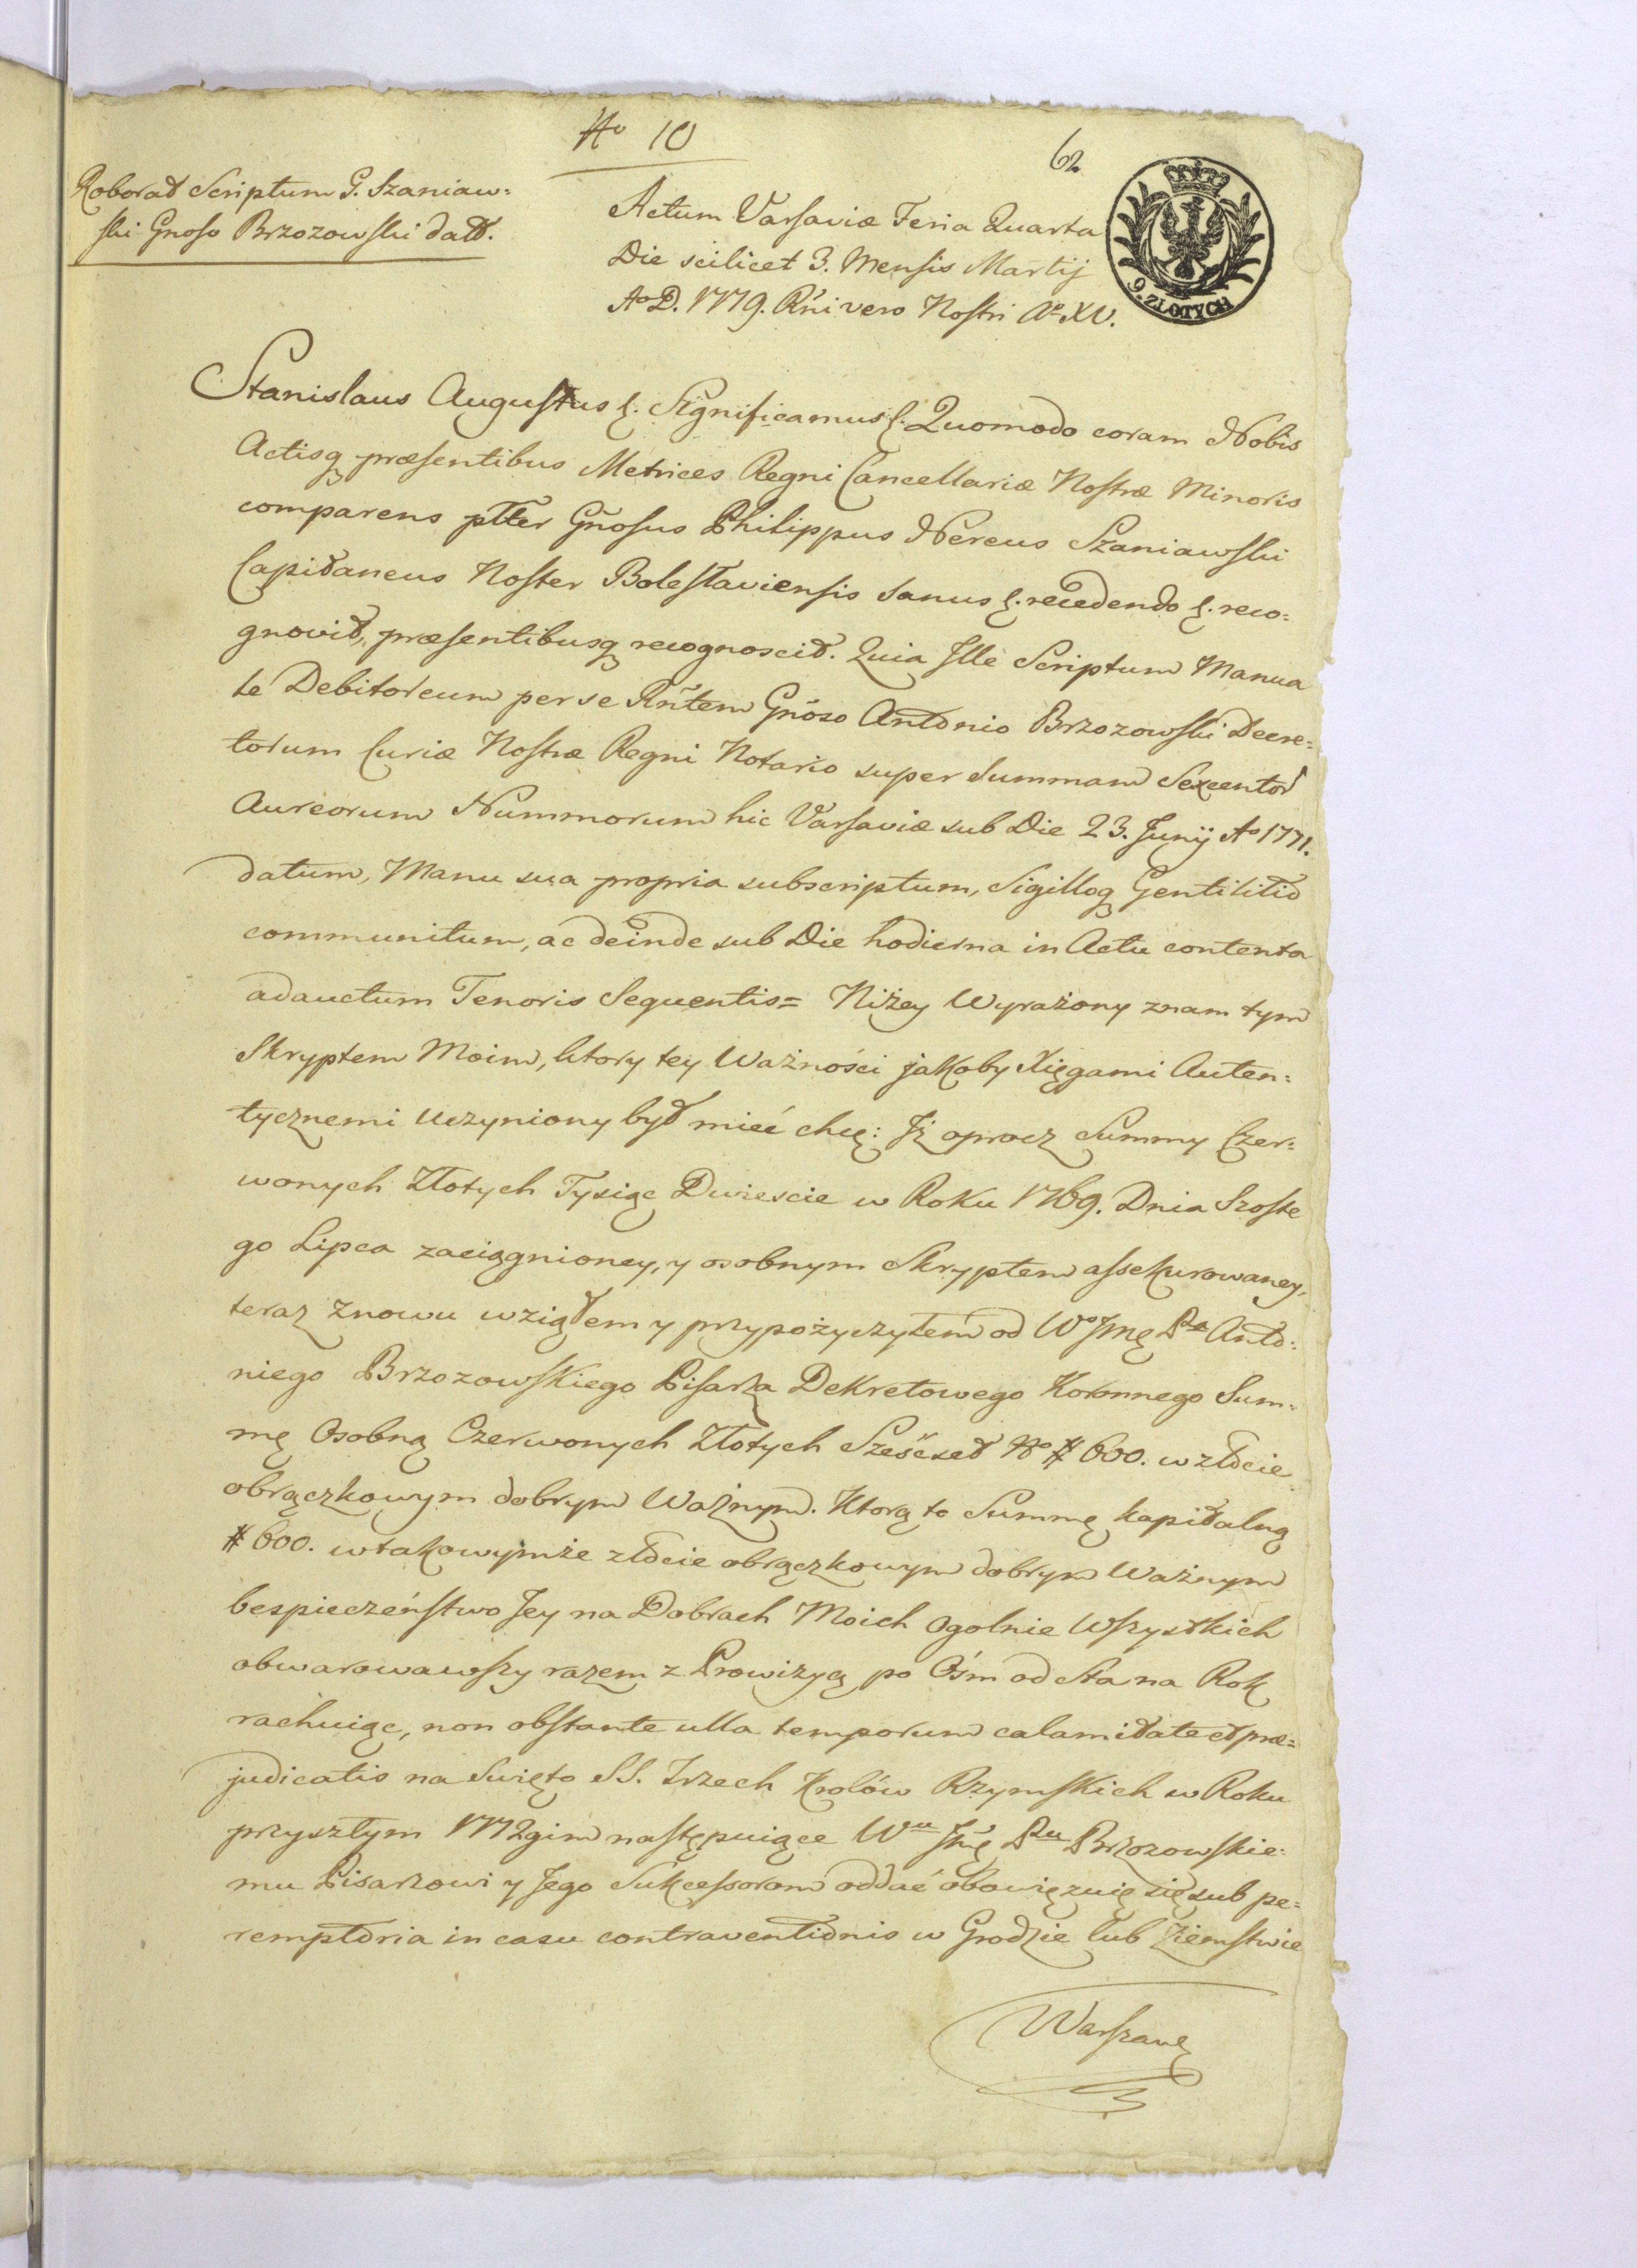 No 10
62
Roborat Scriptum G. Szaniaw:
ski Gnoso Brzozowski datt.
Actum Varsaviæ Feria Quarta
Die scilicet 3. Mensis Martij
Ao D. 1779. Rńi vero Nostri Ao XV.
9. ZŁOTYCH
Stanislaus Augustus &. Significamus &. Quomodo coram Nobis
Actisq præsentibus Metrices Regni Cancellariæ Nostræ Minoris
comparens plter Gnosus Philippus Nereus Szaniawski
Capitaneus Noster Boleslaviensis sanus &. recedendo &. reco:
gnovit, præsentibusq recognoscit. Quia Ille Scriptum Manua
le Debitoreum per se Rńtem Gnoso Antonio Brzozowski Decre:
torum Curiæ Nostræ Regni Notario super Summam Sexcentor
Aureorum Nummorum hic Varsaviæ sub Die 23. Junij Ao 1771.
datum, Manu sua propria subscriptum, Sigilloq Gentilitio
communitum, ac deinde sub Die hodierna in Actu contenta
adauctum Tenoris Sequentis= Niżey Wyrażony znam tym
Skryptem Moim, ktory tey Ważności jakoby Xięgami Auten:
tycznemi uczyniony był mieć chcę: Iż oprocz Summy Czer:
wonych Złotych Tysiąc Dwiescie w Roku 1769. Dnia Szoste
go Lipca zaciągnioney, y osobnym Skryptem assekurowaney,
teraz znowu wziąłem y przypożyczyłem od Wo Jmę Pa Anto:
niego Brzozowskiego Pisarza Dekretowego Koronnego Sum:
mę Osobną Czerwonych Złotych Sześćset No # 600. w złocie
obrączkowym dobrym Ważnym. Ktorą to Summę kapitalną
# 600. w takowymże złocie obrączkowym dobrym Ważnym
bespieczeństwo Jey na Dobrach Moich Ogolnie Wszystkich
obwarowawszy razem z Prowizyą po Ośm od Sta na Rok
rachuiąc, non obstante ulla temporum calamitate et præ=
judicatis na Swięto SS. Trzech Krolów Rzymskich w Roku
przyszłym 1772gim następuiące Wu Jmę Pu Brzozowskie:
mu Pisarzowi y Jego Sukcessorom oddać obowięzuię się sub pe:
remptoria in casu contraventionis w Grodzie lub Ziemstwie
Warszaws